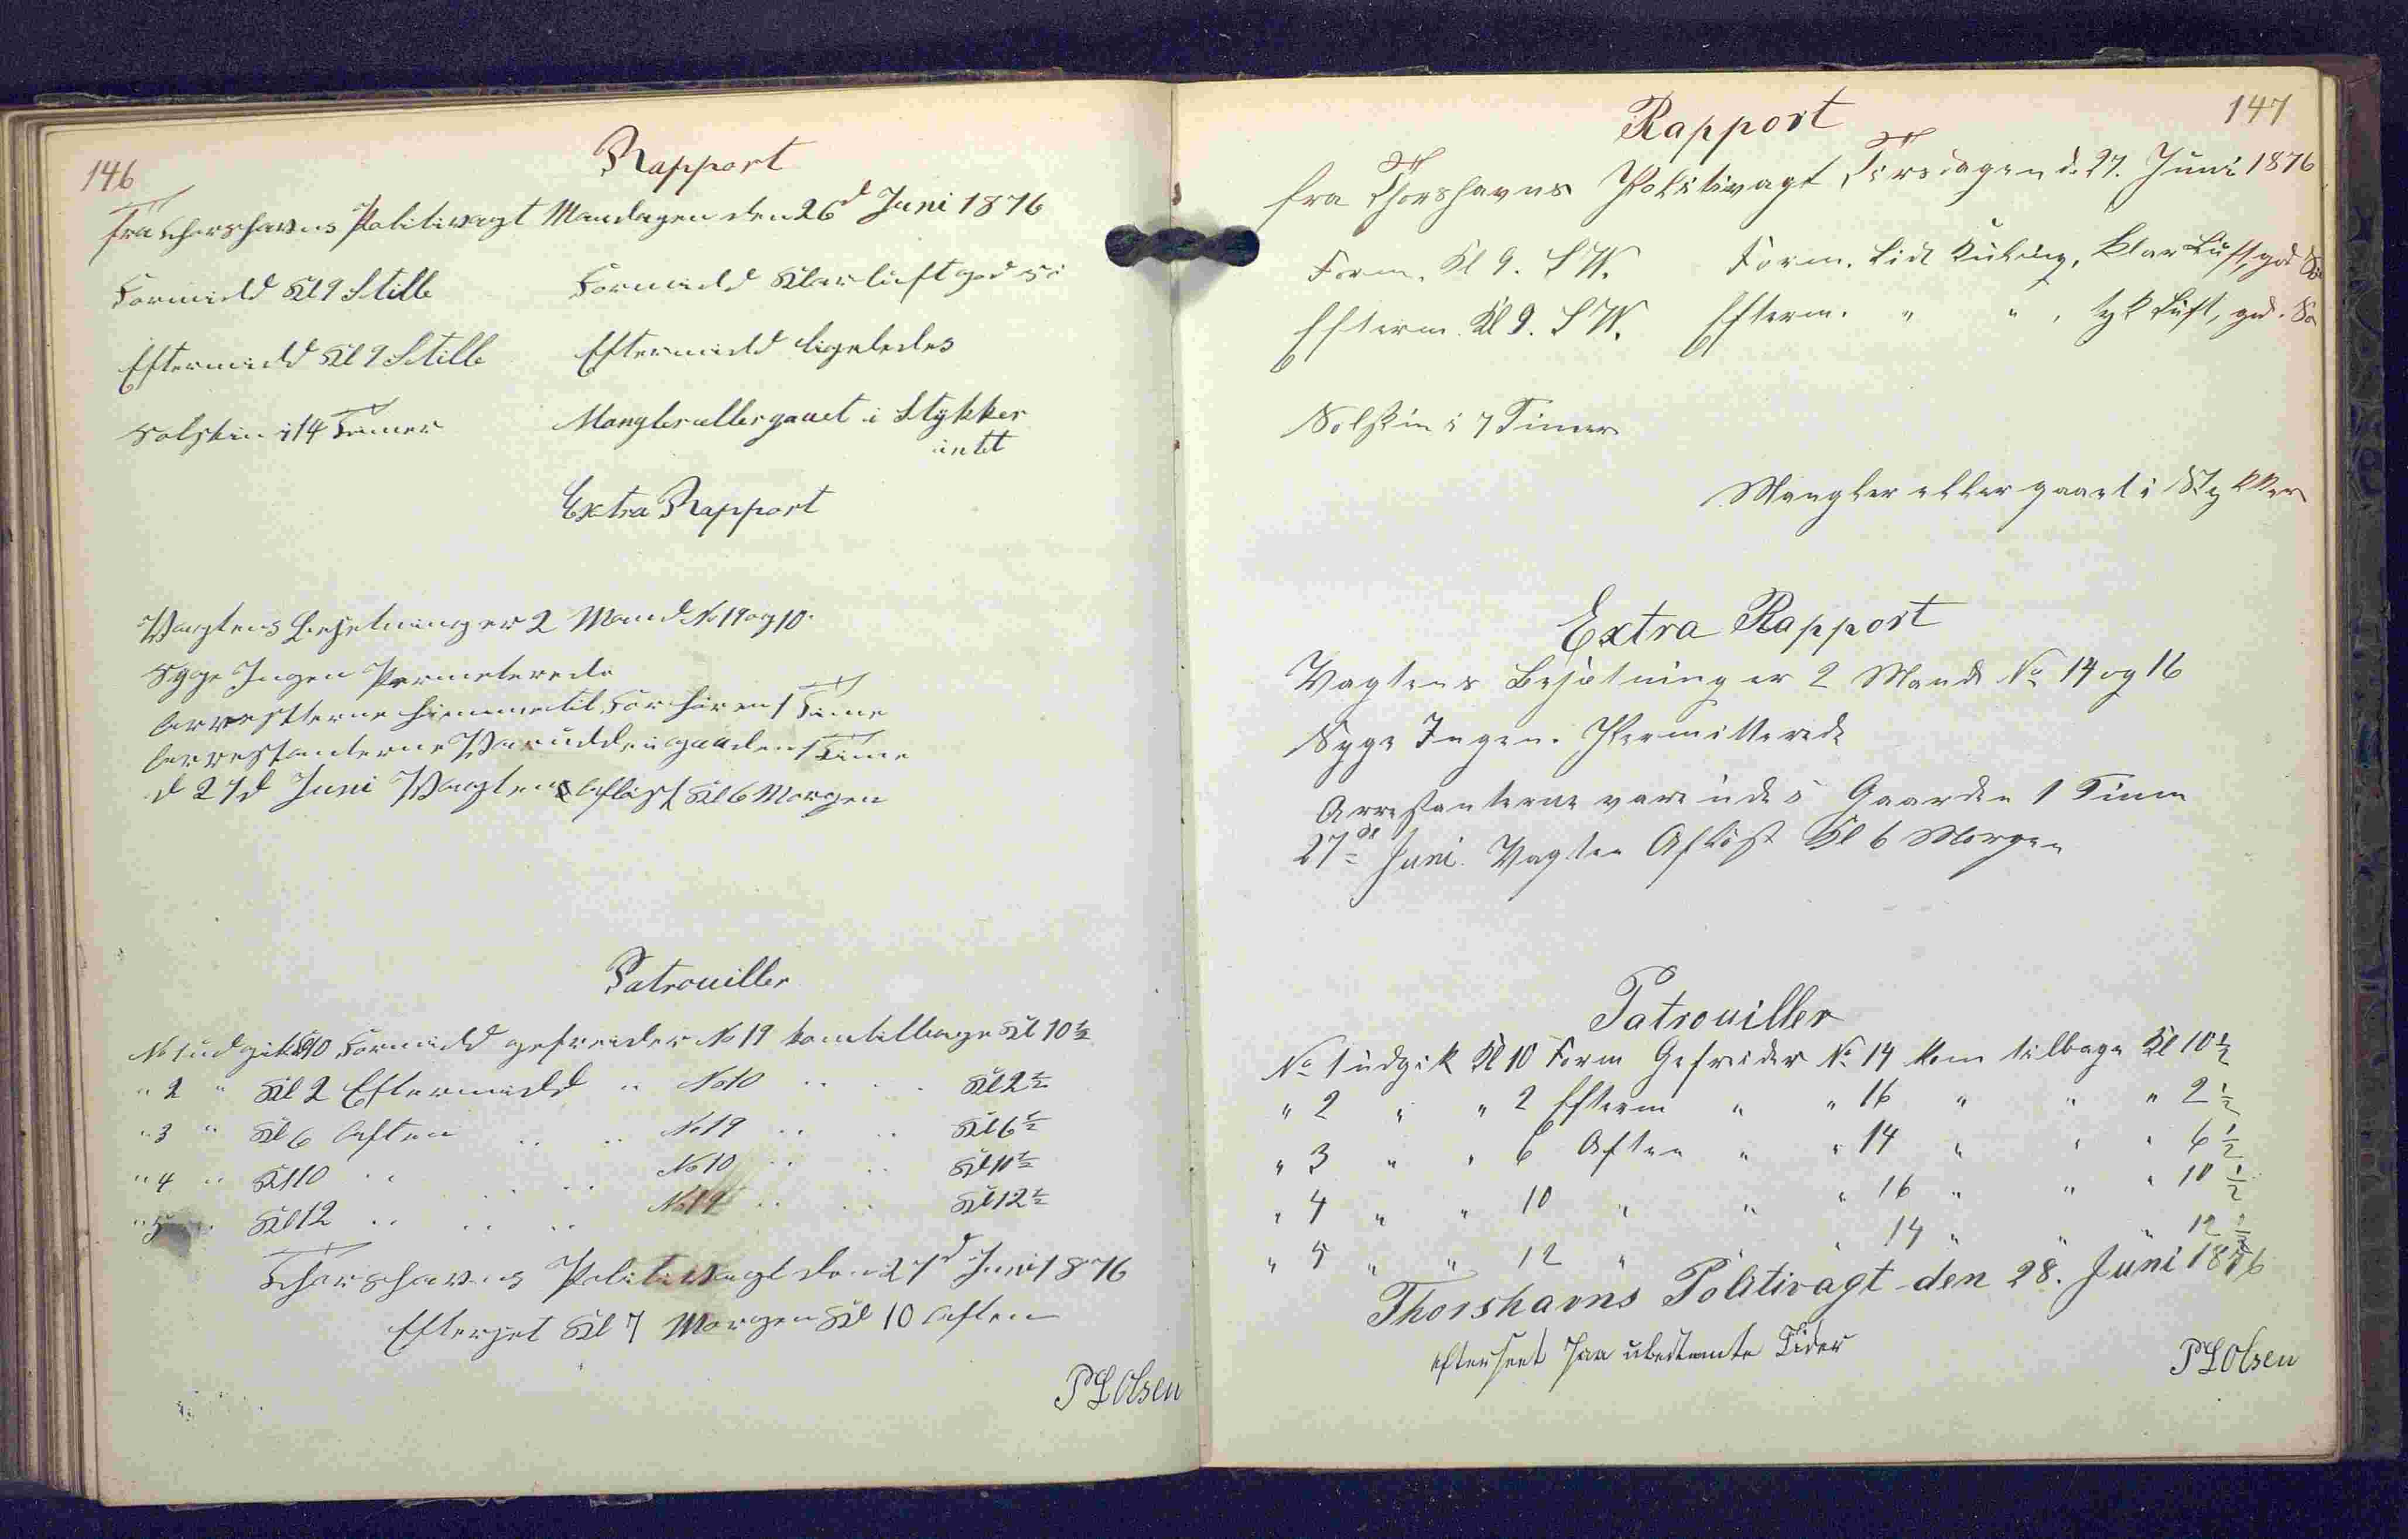 146
Rapport
fra Thorshavns Politivagt Mandagen den 26d Juni 1876
Formidd Kl 9 Stille Formidd Klar luft god Sö
Eftermidd Kl 9 Stille Eftermidd ligeledes
Solskin i 14 Timer Mangler eller gaaet i Stykker
intet
Extra Rapport
Vagtens Besetning er 2 Mand No 19 og 10.
Syge Ingen Permeterede
Arrestterne hemme til Forhör en 1 Time
Arrestanterne Var udde i gaaden 1 Time
d 27d Juni Vagten Aflöst Kl 6 Morgen
Patrouiller
No 1 udgik Kl 10 Formidd gefreider No 19 kom tilbage Kl 10 1/2
" 2 " Kl 2 Eftermidd " No 10 " " Kl 2 1/2
" 3 " Kl 6 Aften " " No 19 " " Kl 6 1/2
" 4 " Kl 10 " " " No 10 " " Kl 10 1/2
" 5 " Kl 12 " " " No 19 " " Kl 12 1/2
Thorshavns Politivagt den 27d Juni 1876
Efterset Kl 7 Morgen Kl 10 Aften
P L Olsen
147
Rapport
fra Thorshavns Politivagt Tirsdagen d. 27. Juni 1876
Form. Kl 9. S W. Form. Lidt Kuling, Klar Luft, god Sö
Efterm. Kl 9. S W. Efterm. " " , tyk Luft, god. Sö
Solskin i 7 Timer
Mangler eller gaaet i Stykker
Extra Rapport
Vagtens Besætning er 2 Mand No 14 og 16
Syge Ingen. Permitterede
Arrestanterne vare ude i Gaarden 1 Time
27de Juni. Vagten Aflöst Kl 6 Morgen
Patrouiller
No 1 udgik Kl 10 Form Gefreider No 14 kom tilbage Kl 10 1/2
" 2 " " 2 Efterm " " 16 " " " 2 1/2
" 3 " " 6 Aften " " 14 " " " 6 1/2
" 4 " " 10 " " " 16 " " " 10 1/2
" 5 " " 12 " " 14 " " " 12 1/2
Thorshavns Politivagt den 28. Juni 1876
Efterseet paa ubestemte Tider
P L Olsen